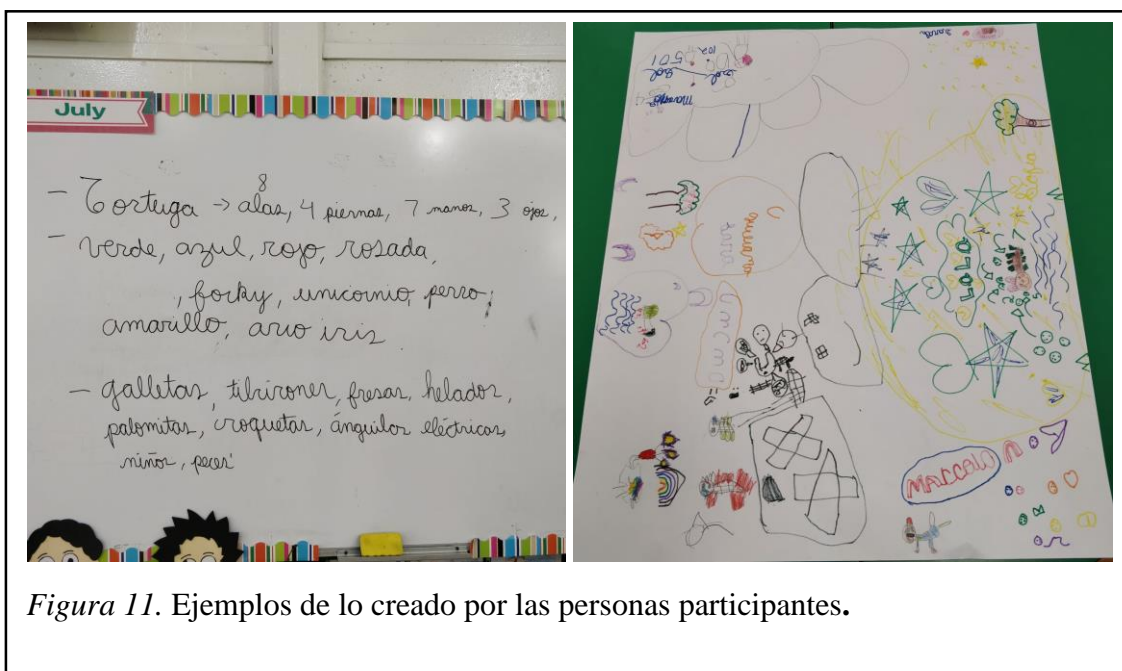 July
8
- Tortuga → alas, 4 piernas, 7 manos, 3 ojos,
- verde, azul, rojo, rosada,
, forky, unicornio, perro,
amarillo, arco iris
- galletas, tiburones, fresas, helados,
palomitas, croquetas, ánguilas eléctricas,
niños, peces
sara
sol
102
501
sara
sofia
MARCELO
Figura 11. Ejemplos de lo creado por las personas participantes.